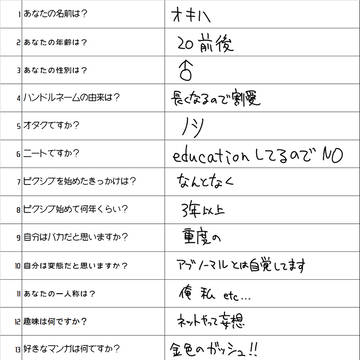 1 あなたの名前は? オキハ
2 あなたの年齢は? 20前後
3 あなたの性別は? ♂
4 ハンドルネームの由来は? 長くなるので割愛
5 オタクですか? ハイ
6 ニートですか? educationしてるのでNO
7 ピクシブを始めたきっかけは? なんとなく
8 ピクシブ始めて何年くらい? 3年以上
9 自分はバカだと思いますか? 重度の
10 自分は変態だと思いますか? アブノーマルとは自覚してます
11 あなたの一人称は? 俺 私 etc...
12 趣味は何ですか? ネットやって妄想
13 好きなマンガは何ですか? 金色のガッシュ!!